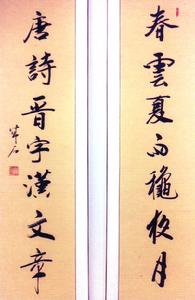 春雲夏雨穐夜月
唐詩晉字漢文章